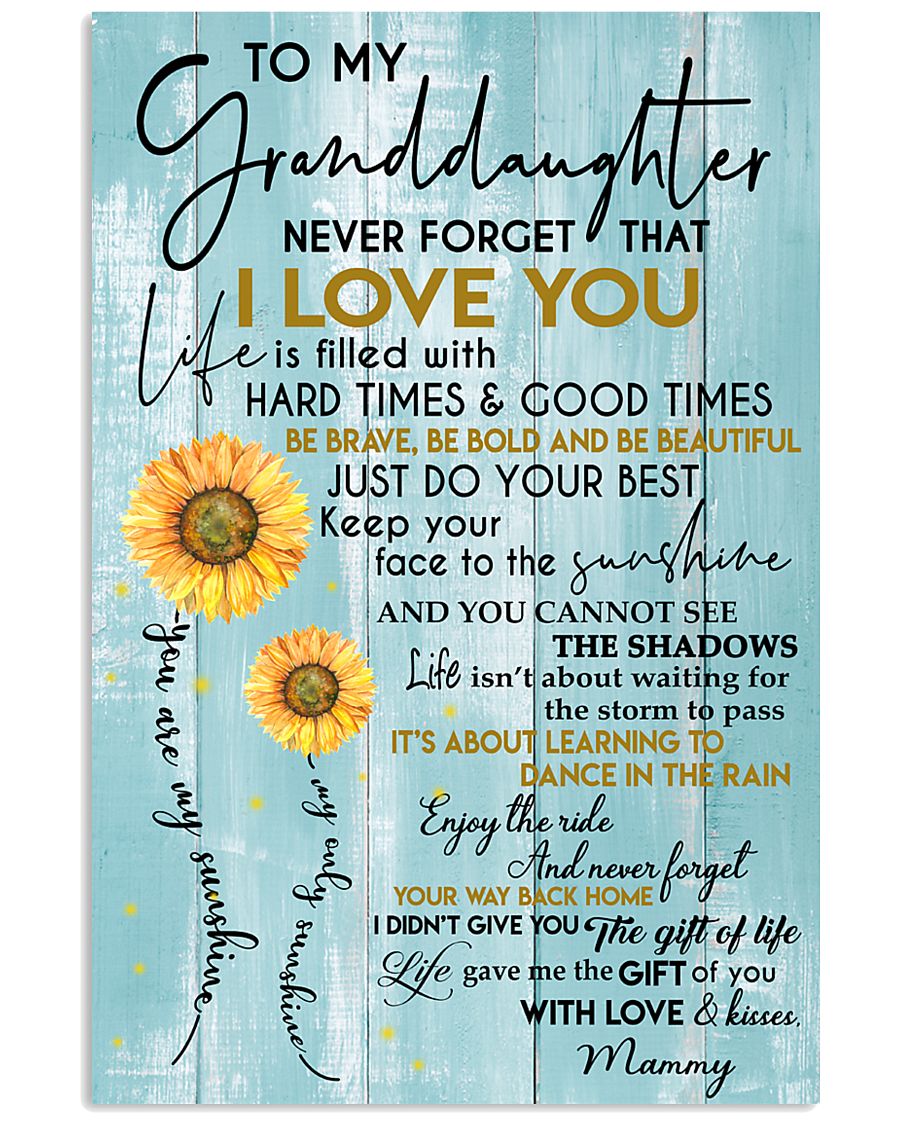 TO MY
Granddaughter
NEVER FORGET THAT
I LOVE YOU
Life is filled with
HARD TIMES & GOOD TIMES
BE BRAVE, BE BOLD AND BE BEAUTIFUL
JUST DO YOUR BEST
Keep your
face to the sunshine
AND YOU CANNOT SEE
THE SHADOWS
Life isn't about waiting for
the storm to pass
IT'S ABOUT LEARNING TO
DANCE IN THE RAIN
Enjoy the ride
And never forget
YOUR WAY BACK HOME
I DIDN'T GIVE YOU The gift of life
Life gave me the GIFT of you
WITH LOVE & kisses,
Mammy
you are my sunshine
my only sunshine